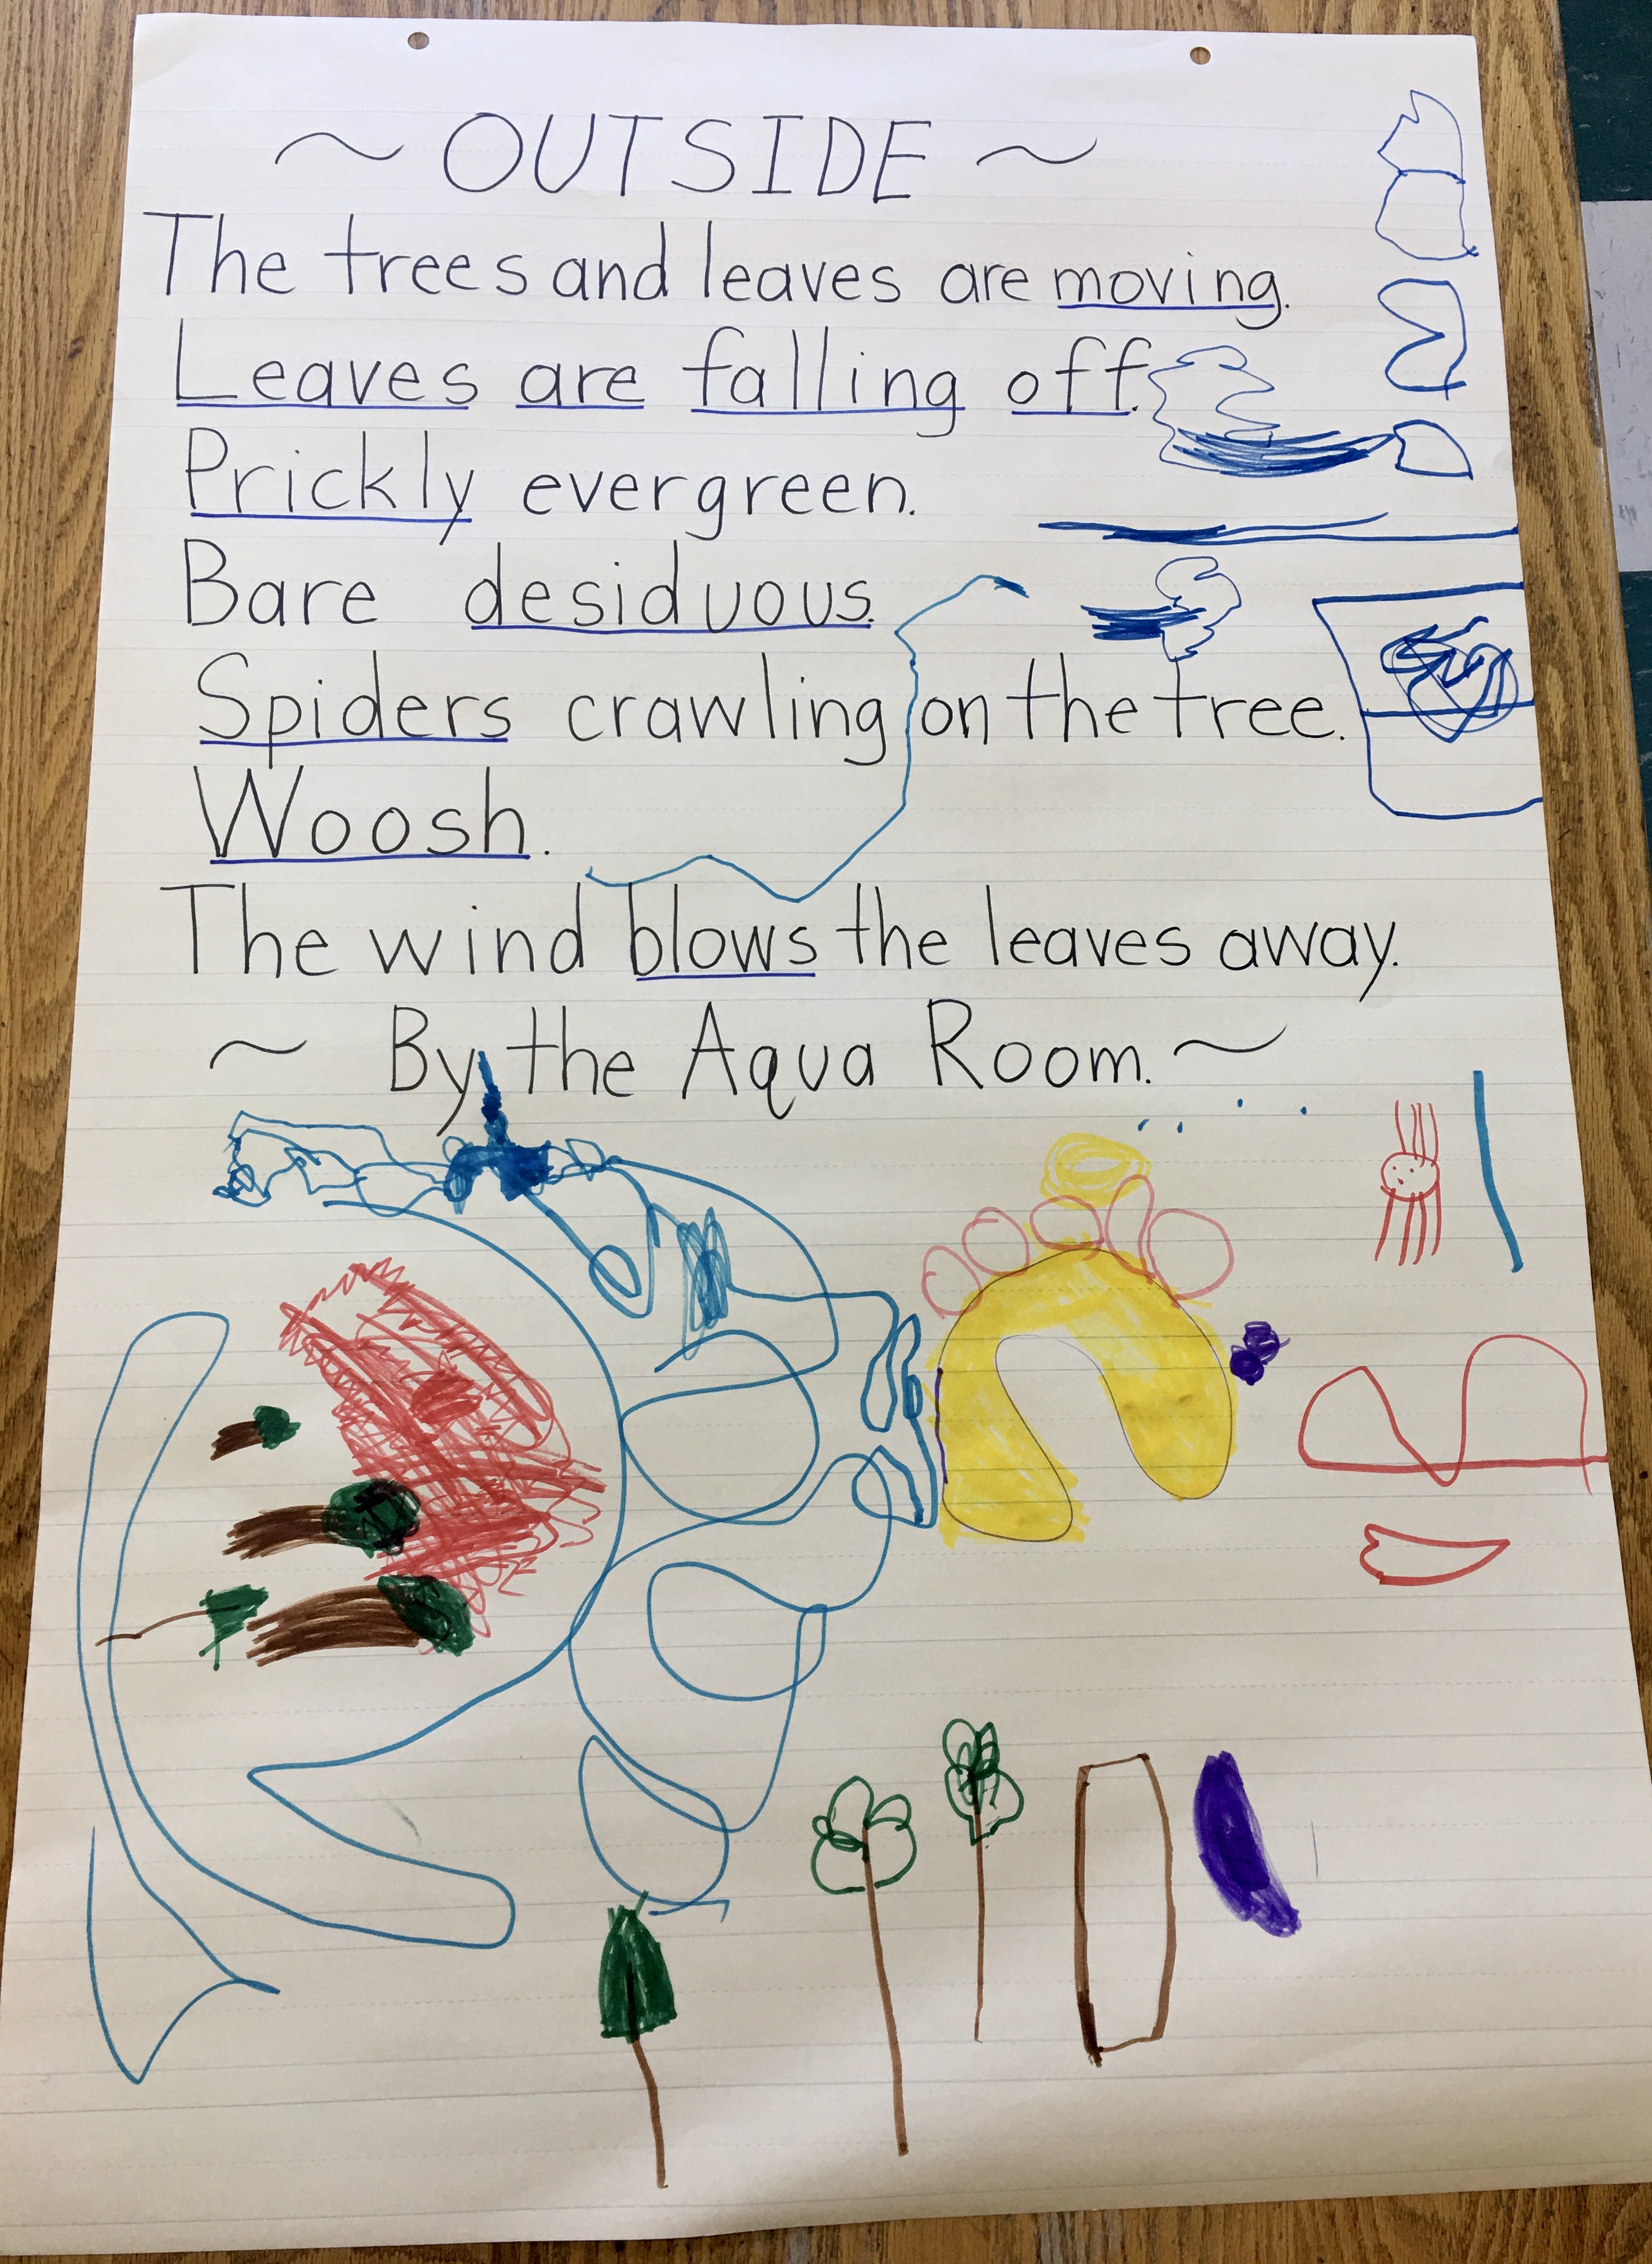 ~ OUTSIDE ~
The trees and leaves are moving.
Leaves are falling off.
Prickly evergreen.
Bare desiduous.
Spiders crawling on the tree.
Woosh.
The wind blows the leaves away.
~ By the Aqua Room. ~